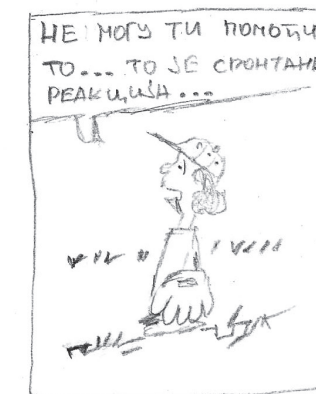 НЕ МОГУ ТИ ПОМОЋИ
ТО... ТО ЈЕ СПОНТАН
РЕАКЦИЈА...